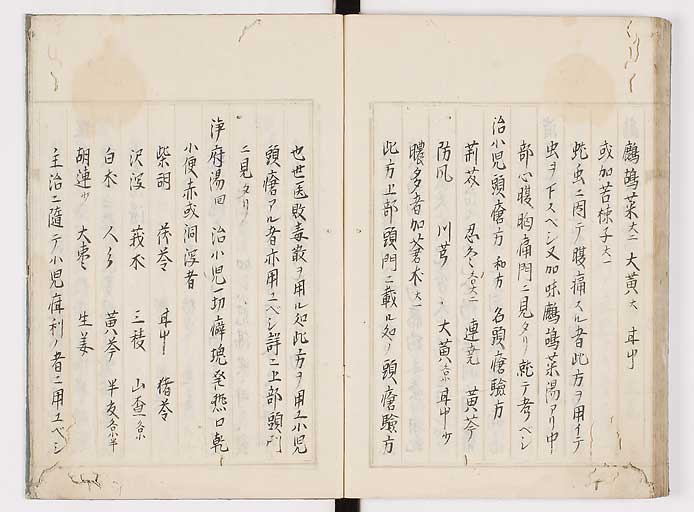 鷓鴣菜大二 大黄大 耳中
或加苦楝子大一
蛇虫ニ因テ腹痛スル者此方ヲ用イテ
虫ヲ下スベシ又加味鷓鴣菜湯アリ中
部心腹胸痛門ニ見タリ就テ考ベシ
治小児頭瘡方 和方 名頭瘡験方
荊芥 忍冬 各大二 連尭 黄芩
防風 川芎 大黄 各京 耳中少
膿多者加蒼朮大一
此方上部頭門ニ載ル知ノ頭瘡験方
也世医敗毒散ヲ用ル知此方ヲ用ユ小児
頭瘡アル者亦用ユベシ詳ニ上部頭門
ニ見タリ
浄府湯回 治小児一切癖塊発熱口乾
小便赤或洞瀉者
柴胡 茯苓 耳中 猪苓
沢瀉 莪朮 三稜 山査各京
白朮 人参 黄芩 半夏各京半
胡連少 大棗 生姜
主治ニ随テ小児疳利ノ者ニ用ユベシ